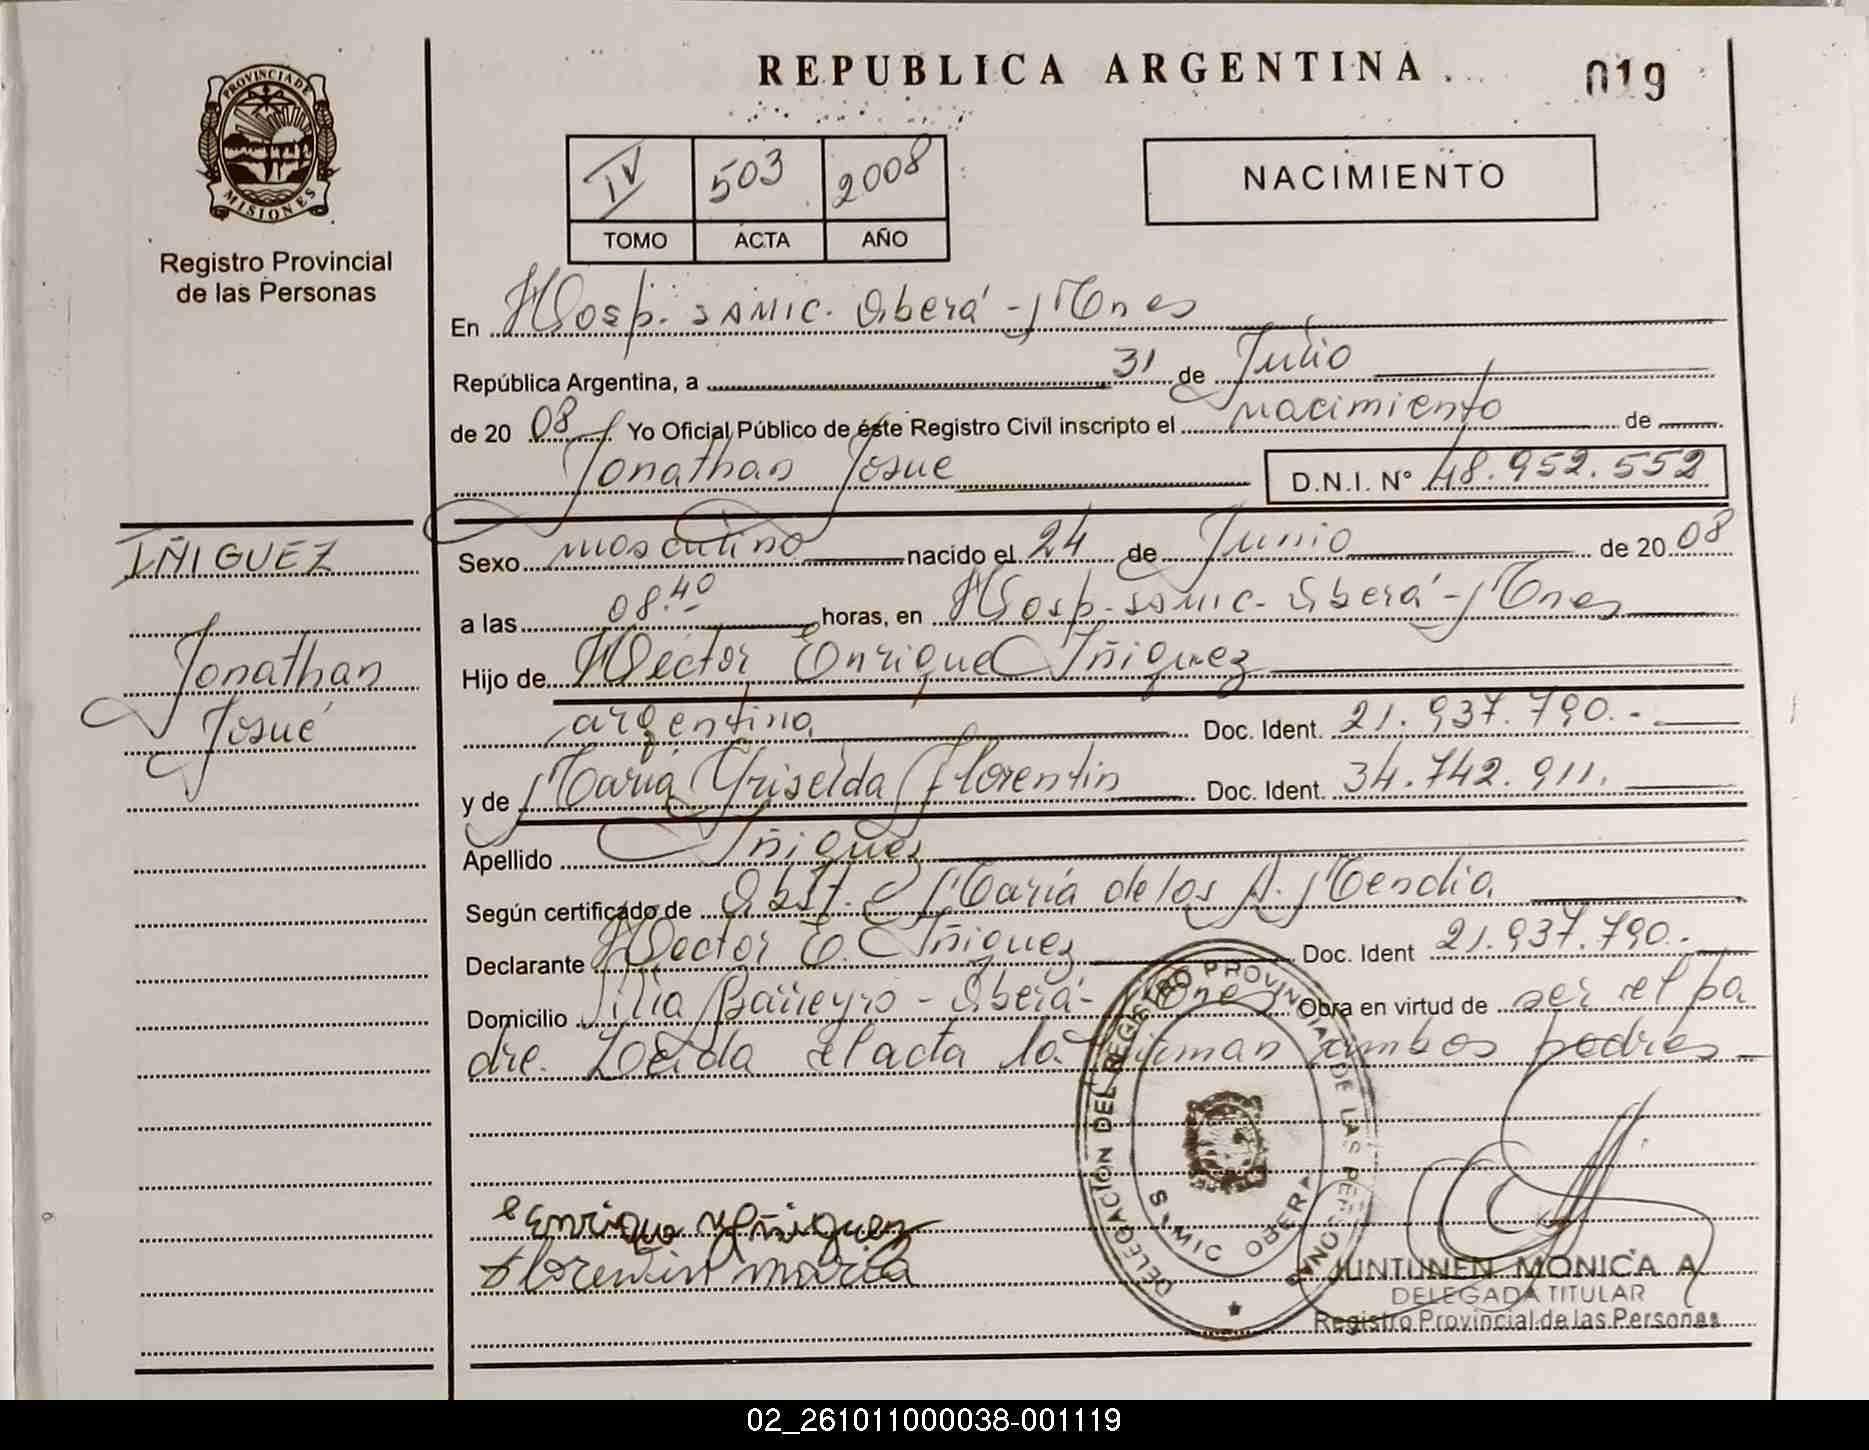 REPUBLICA ARGENTINA
019
PROVINCIA DE
MISIONES
Registro Provincial
de las Personas
IV 503 2008
TOMO ACTA AÑO
NACIMIENTO
En Hosp. SAMIC. Oberá - Mnes
República Argentina, a 31 de Julio
de 20 08 Yo Oficial Público de éste Registro Civil inscripto el nacimiento de
Jonathan Josue D.N.I. N° 48.952.552
IÑIGUEZ
Jonathan
Josué
Sexo masculino nacido el 24 de Junio de 20 08
a las 08.40 horas, en Hosp. samic. Oberá - Mnes
Hijo de Héctor Enrique Iñiguez
argentino Doc. Ident. 21.937.790.-
y de María Griselda Florentin Doc. Ident. 34.742.911.
Apellido Iñiguez
Según certificado de Obst. María de los A. Mendia
Declarante Hector E. Iñiguez Doc. Ident 21.937.790.-
Domicilio Villa Barreyro - Oberá - Mnes Obra en virtud de ser el pa
dre. Leída el acta la firman ambos padres
Enrique Yñiguez
Florentin maria
DELEGACION DEL REGISTRO PROVINCIAL DE LAS PERSONAS
SAMIC OBERA
JUNTUNEN MONICA A
DELEGADA TITULAR
Registro Provincial de las Personas
02_261011000038-001119